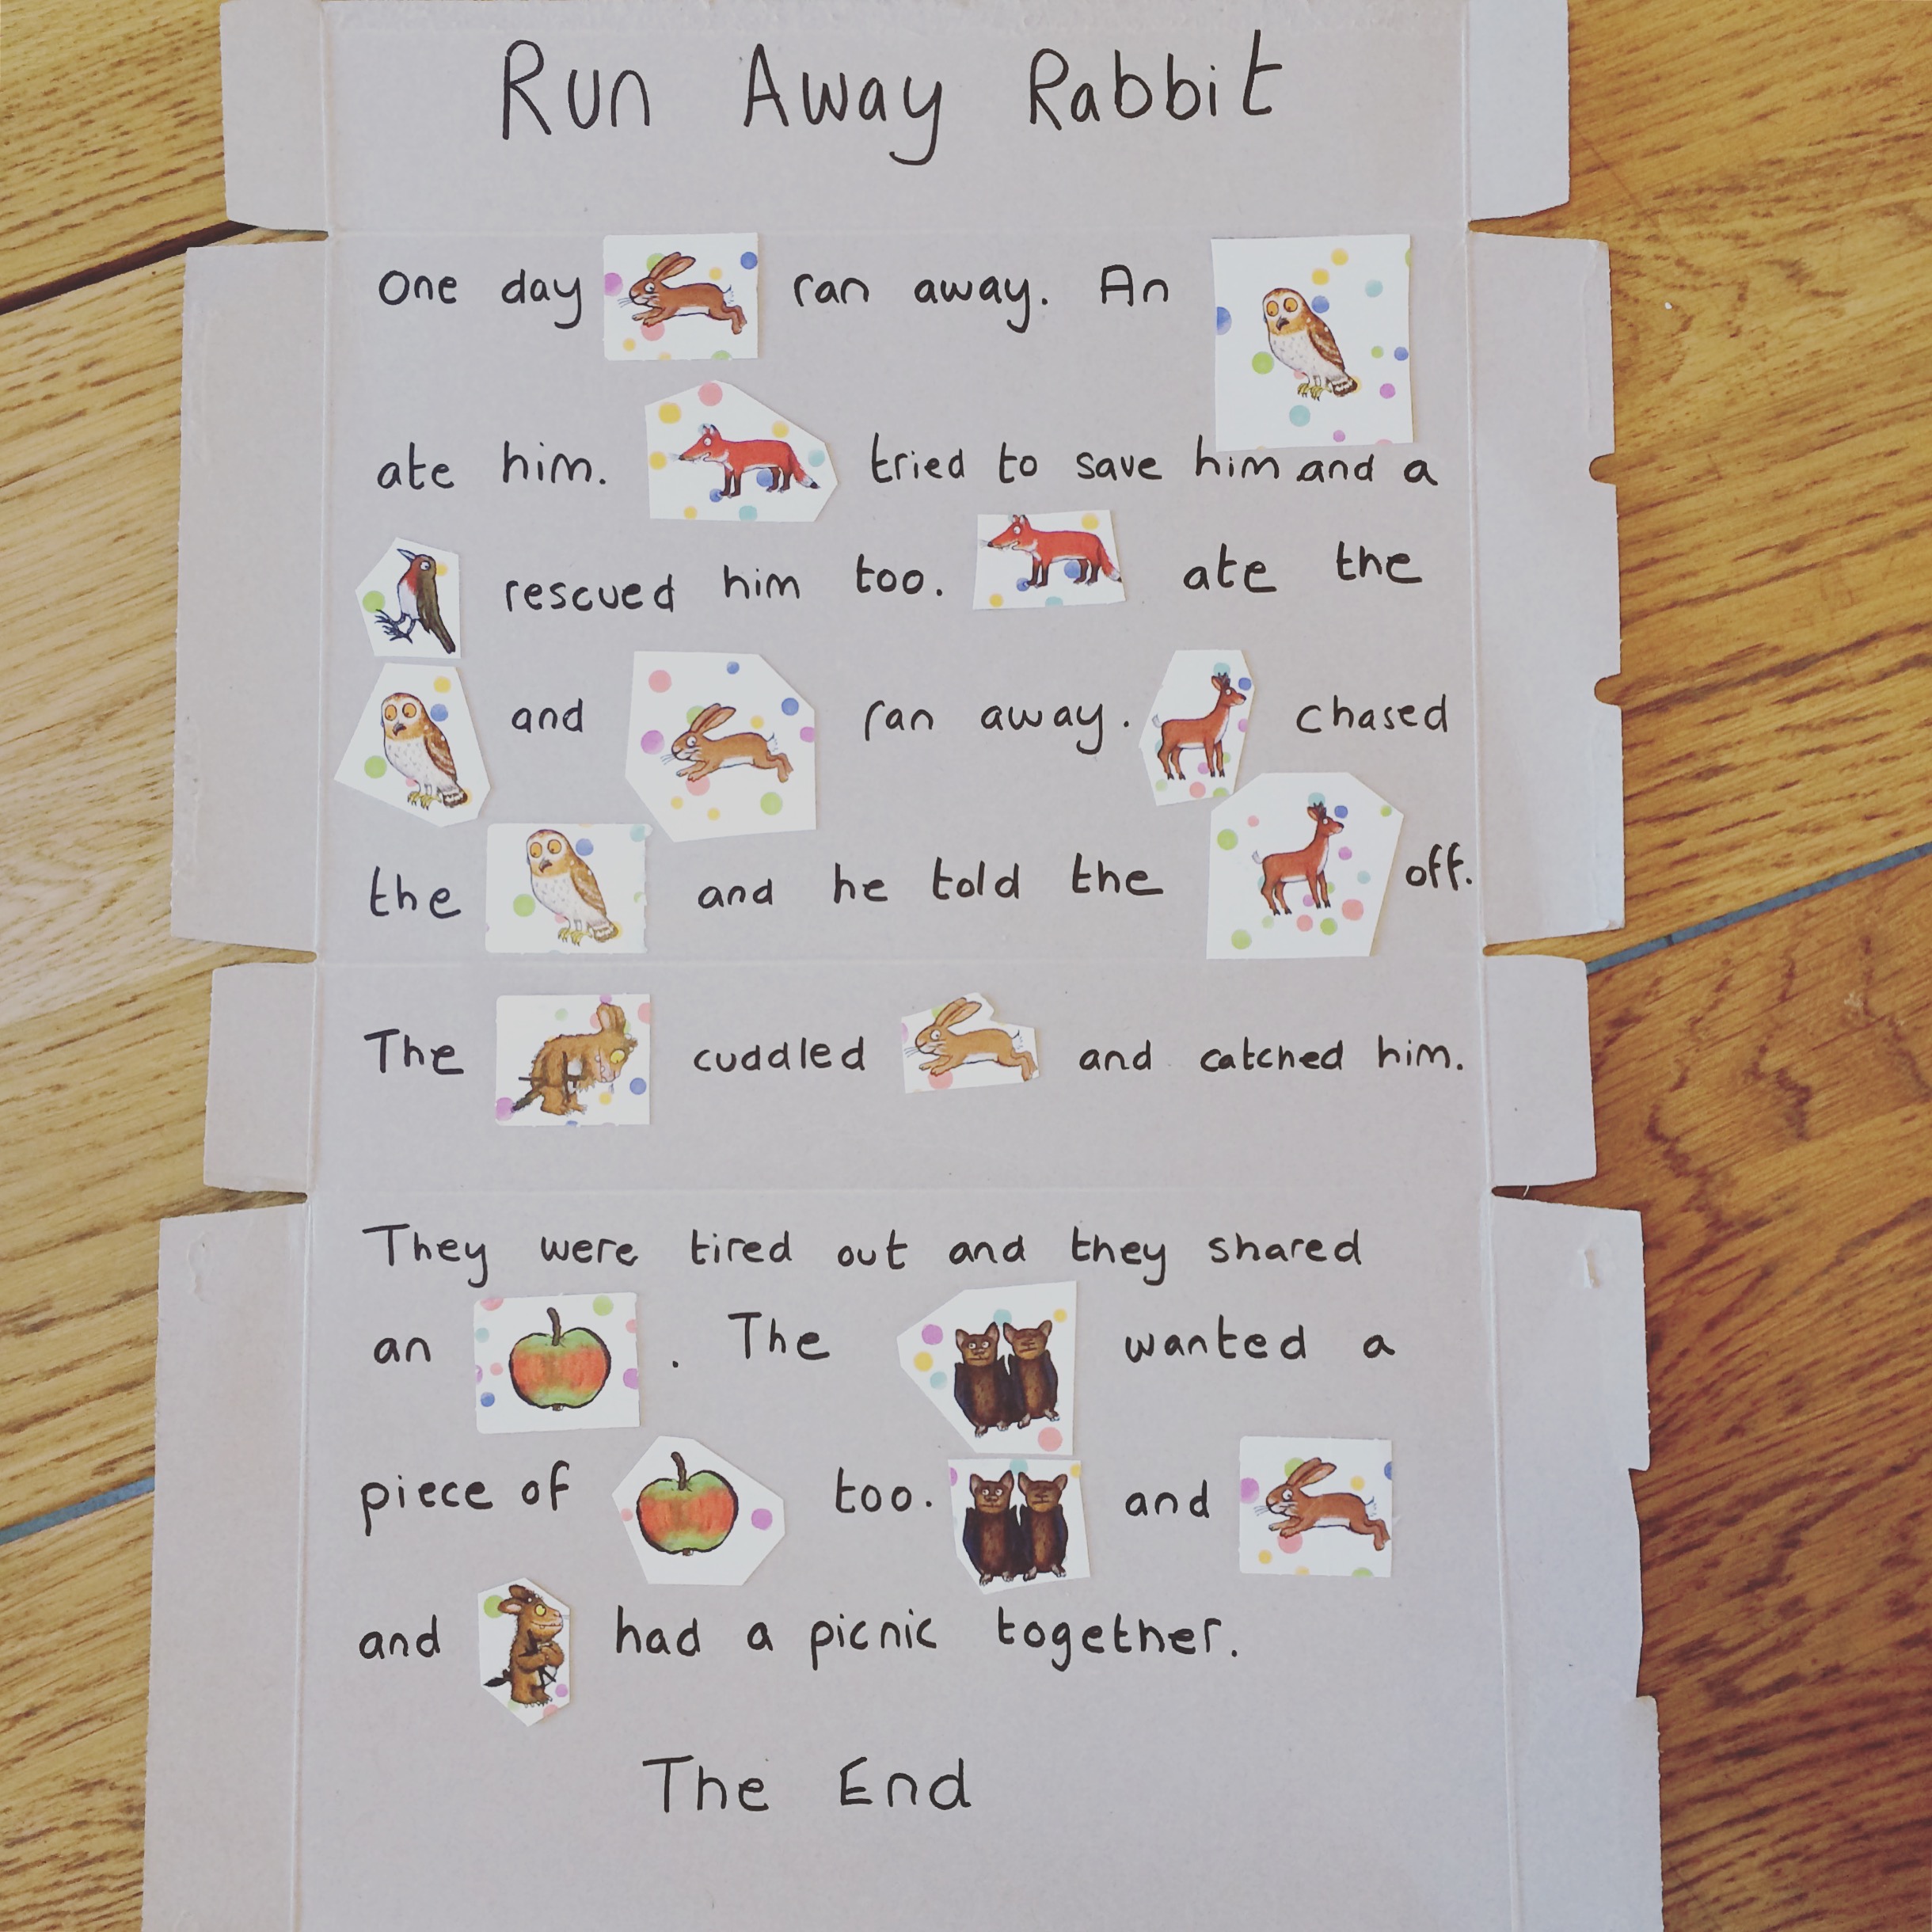 Run Away Rabbit
One day ran away. An
ate him. tried to save him and a
rescued him too. ate the
and ran away. chased
the and he told the off.
The cuddled and catched him.
They were tired out and they shared
an . The wanted a
piece of too. and
and had a picnic together.
The End